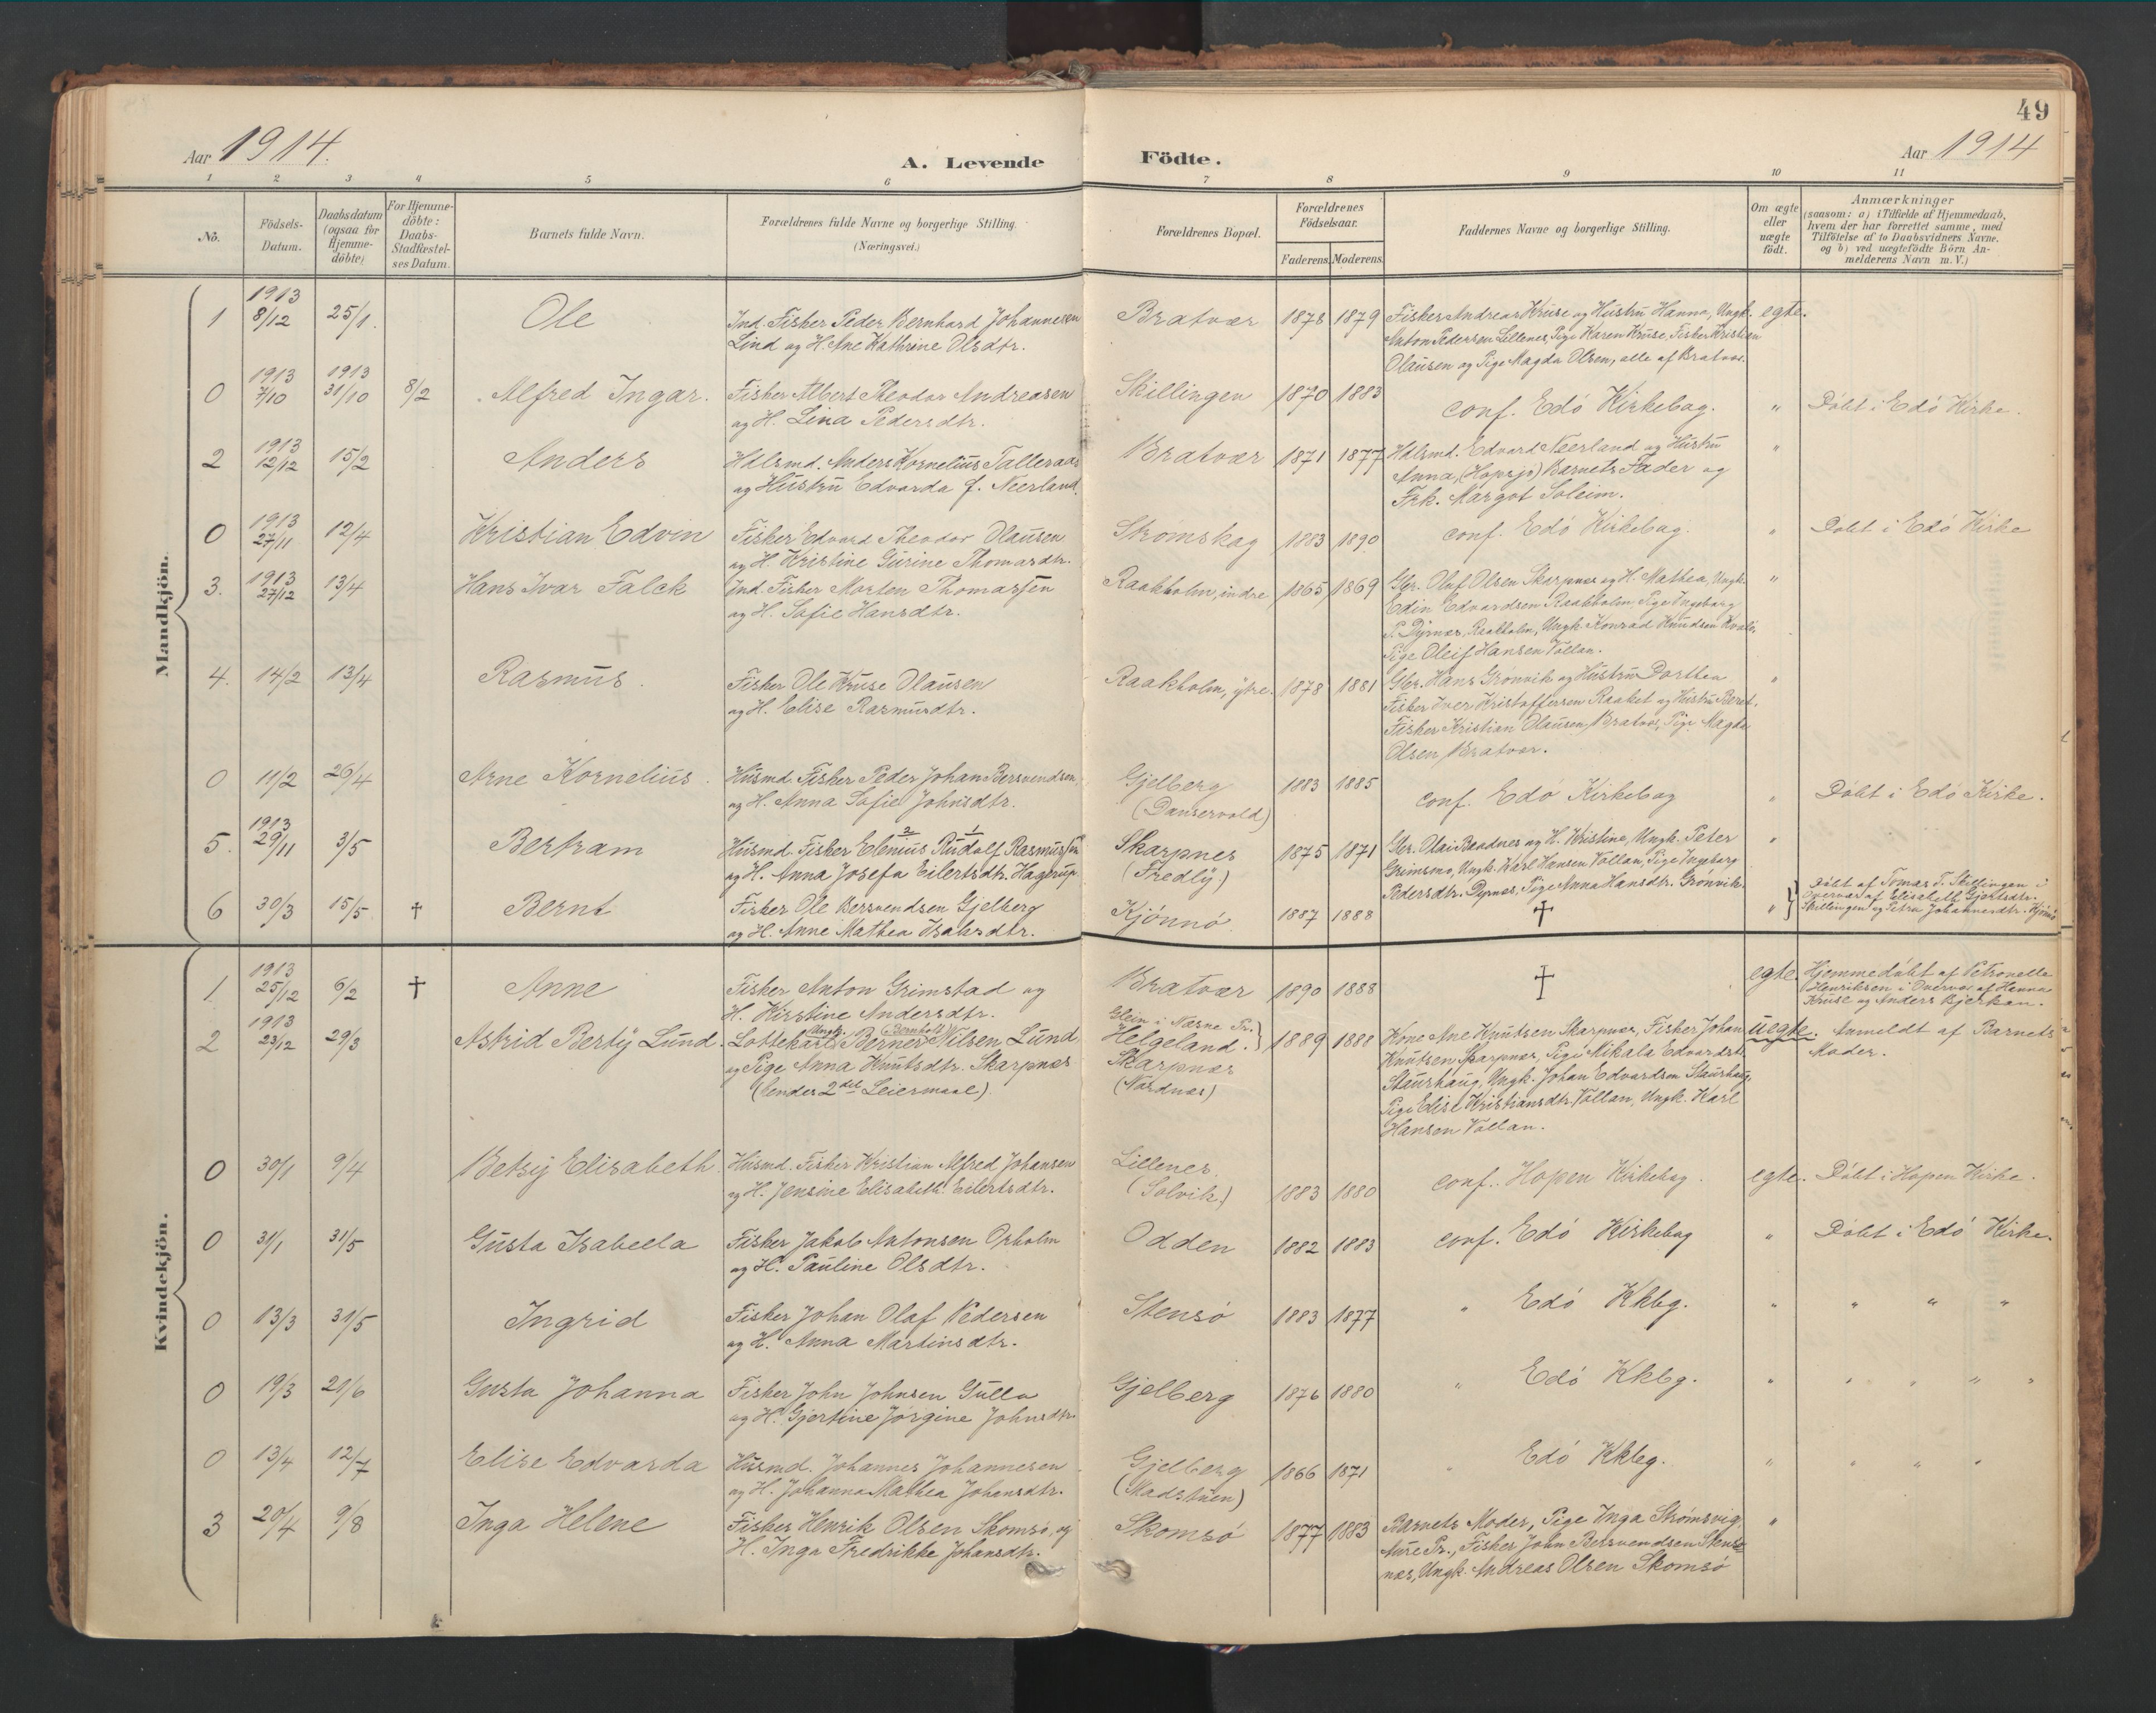 49
Aar 1914.
A. Levende Födte.
Aar 1914
1 2 3 4 5 6 7 8 9 10 11
No.
Födsels-Datum.
Daabsdatum (ogsaa for Hjemme-döbte)
For Hjemme-döbte: Daabs-Stadfæstel-ses Datum.
Barnets fulde Navn.
Forældrenes fulde Navne og borgerlige Stilling. (Næringsvei.)
Forældrenes Bopæl.
Forældrenes Födselsaar.
Faderens. Moderens.
Faddernes Navne og borgerlige Stilling.
Om ægte eller uægte födt.
Anmærkninger
(saasom: a) i Tilfælde af Hjemmedaab,
hvem der har forrettet samme, med
Tilföielse af to Daabsvidners Navne,
og b) ved uægtefödte Börn An-
melderens Navn m. V.)
Mandkjön.
1 1913 8/12 25/1. Ole
Ind. Fisker Peder Bernhard Johannesen
Lind og H. Ane Kathrine Olsdtr.
Bratvær 1878 1879
Fisker Andreas Kruse og Hustru Hanna, Ungk.
Anton Pedersen Lillenes, Pige Karen Kruse, Fisker Kristian
Olausen og Pige Magda Olsen, alle af Bratvær.
egte.
0 1913 7/10 1913 31/10 8/2 Alfred Ingar.
Fisker Albert Theodor Andreasen
og H. Lina Pedersdtr.
Skillingen 1870 1883
conf. Edö Kirkebog. " Döbt i Edö Kirke.
2 1913 12/12 15/2 Anders
Hdlsmd. Anders Kornelius Talleraas
og Hustru Edvarda f. Neerland.
Bratvær 1871 1877
Hdlsmd. Edvard Neerland og Hustru
Anna, (Hopsjö) Barnets Fader og
Frk. Margot Soleim.
"
0 1913 27/11 12/4 Kristian Edvin
Fisker Edvard Theodor Olausen
og H. Kristine Gurine Thomasdtr.
Stromskag 1883 1890
conf. Edö Kirkebog. " Döbt i Edö Kirke
3. 1913 27/12 13/4 Hans Ivar Falck
Ind. Fisker Morten Thomassen
og H. Sofie Hansdtr.
Raakholm, indre 1865 1869
Gbr. Oluf Olsen Skarpnes og H. Mathea, Ungk.
Edin Edvardsen Raakholm, Pige Ingeborg
P. Dyrnæs, Raakholm, Ungk. Konrad Knudsen
Pige Oleif Hansen Vollan.
"
4. 14/2 13/4 Rasmus.
Fisker Ole Kruse Olausen
og H. Elise Rasmusdtr.
Raakholm, ytre. 1878 1881
Gbr. Hans Grönvik og Hustru Dorthea
Fisker Iver Kristoffersen Raaket og Hustru Beret.
Fisker Kristian Olausen, Bratvær, Pige Magda
Olsen, Bratvær.
"
0 11/2 26/4 Arne Kornelius.
Husmd. Fisker Peder Johan Bersvendsen
og H. Anna Sofie Johnsdtr.
Gjelberg (Danservold) 1883 1885
conf. Edö Kirkebog " Döbt i Edö Kirke.
5. 1913 29/11 3/5 Bertram
2 1
Husmd. Fisker Elenius Rudolf Rasmussen
og H. Anna Josefa Eilertsdtr. Hagerup
Skarpnes (Fredly) 1875 1871
Gbr. Olai Raadnes og H. Kristine, Ungk. Peter
Grimsmo, Ungk. Karl Hansen Vollan, Pige Ingeborg
Pedersdtr. Dyrnes, Pige Anna Hansdtr. Grönvik.
"
6 30/3 15/5 † Bernt
Fisker Ole Bersvendsen Gjelberg
og H. Anne Mathea Isaksdtr.
Kjönnö 1887 1888 † "
Döbt af Tomas T. Skillingen i
Overvær af Elisabeth Gjertsdtr.
Skillingen og Petra Johannesdtr. Kjönnö
Kvindekjön.
1 1913 25/12 6/2 † Anne
Fisker Anton Grimstad og
H. Kirstine Andersdtr.
Bratvær 1890 1888 † egte.
Hjemmedöbt af Petronelle
Henriksen i Overvær af Hanna
Kruse og Anders Bjerkan.
2 1913 23/12 29/3 Astrid Berty Lund.
Ungk. (Bernhold)
Lottekarl Berner Nilsen Lund
og Pige Anna Knutsdtr. Skarpnes
(bendes 2det Leiermaal)
Glein i Næsne Pr.
Helgeland.
Skarpnæs
(Nordnæs)
1889 1888
Kone Ane Knutsen Skarpnæs, Fisker Johan
Knutsen Skarpnæs, Pige Nikala Edvardsdtr.
Staurhaug, Ungk. Johan Edvardsen Staurhaug,
Pige Elise Kristiansdtr. Vollan, Ungk. Karl
Hansen Vollan.
uegte.
Anmeldt af Barnets
Moder.
0 30/1 9/4 Betsy Elisabeth
Husmd. Fisker Kristian Alfred Johansen
og H. Jensine Elisabeth Eilertsdtr.
Lillenes (Solvik) 1883 1880
conf. Hopen Kirkebog. egte. Döbt i Hopen Kirke.
0 31/1 31/5 Gusta Isabella
Fisker Jakob Antonsen Orholm
og H. Pauline Olsdtr.
Odden 1882 1883
conf. Edö Kirkebog " Döbt i Edö Kirke.
0 13/3 31/5 Ingrid
Fisker Johan Olaf Pedersen
og H. Anna Martinsdtr.
Stensö 1883 1877
" Edö Kkbg. " " " "
0 19/3 21/6 Gusta Johanna
Fisker John Johnsen Gulla
og H. Gjertine Jörgine Johnsdtr.
Gjelberg 1876 1880
" Edö Kkbg. " " " " "
0 13/4 12/7 Elise Edvarda
Husmd. Johannes Johannesen
og H. Johanna Mathea Johansdtr.
Gjelberg (Madstuen) 1866 1871
" Edö Kkbg. " " " "
3 20/4 9/8 Inga Helene
Fisker Henrik Olsen Skomsö, og
H. Inga Fredrikke Johansdtr.
Skomsö 1877 1883
Barnets Moder, Pige Inga Strömsvig
Aure Pr., Fisker John Bersvendsen Stensö
næs, Ungk. Andreas Olsen Skomsö
"